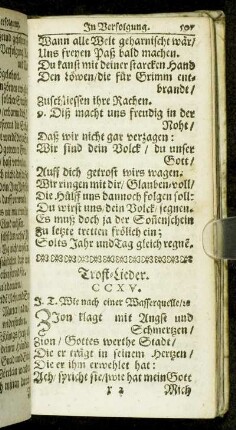 In Verfolgung.
Wann alle Welt geharnischt wär/
Uns freyen Paß bald machen.
Du kanst mit deiner starcken Hand
Den Löwen/die für Grimm ent-
brandt/
Zuschliessen ihre Rachen.
9. Diß macht uns freudig in der
Noht/
Daß wir nicht gar verzagen:
Wir sind dein Volck/du unser
Gott/
Auff dich getrost wirs wagen.
Wir ringen mit dir/Glauben-voll/
Die Hülff uns dannoch folgen soll:
Du wirst uns/dein Volck/segnen.
Es muß doch ja der Soñenschein
Zu letzte tretten frölich ein;
Solts Jahr und Tag gleich regnẽ.
Trost-Lieder.
CCXV.
J. T. Wie nach einer Wasserquelle/
Zion klagt mit Angst und
Schmertzen/
Zion/Gottes werthe Stadt/
Die er trägt in seinem Hertzen/
Die er ihm erwehlet hat:
Ach/spricht sie/wie hat mein Gott
Mich